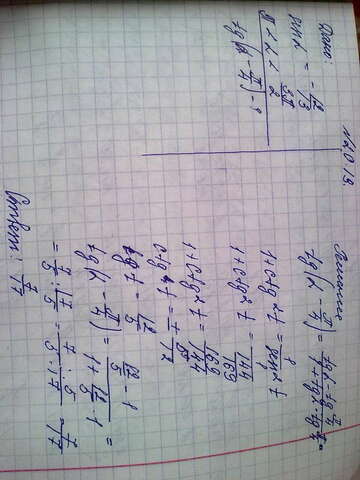 N 20.13.
Дано:
sin α = -12/13
π < α < 3π/2
tg(α - π/4) - ?
Решение
tg(α - π/4) = (tg α - tg π/4)/(1 + tg α · tg π/4) =
1 + ctg² t = 1/sin² t
1 + ctg² t = 1/(144/169)
1 + ctg² t = 169/144
ctg t = + 5/12
tg t = 12/5
tg(α - π/4) = (12/5 - 1)/(1 + 12/5 · 1) =
= 7/5 : 17/5 = (7 · 5)/(5 · 17) = 7/17
Ответ: 7/17